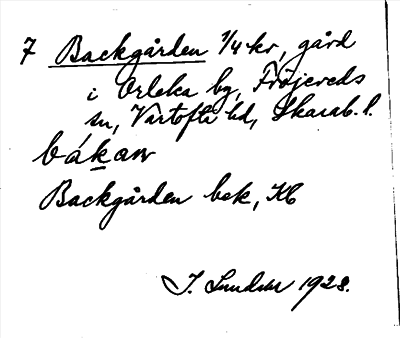 7 Backgården 1/4 kr, gård
i Orleka by, Fröjereds
sn, Vartofta hd, Skarab. l.
bákaɴ
Backgården bek, Kb
J. 1928.